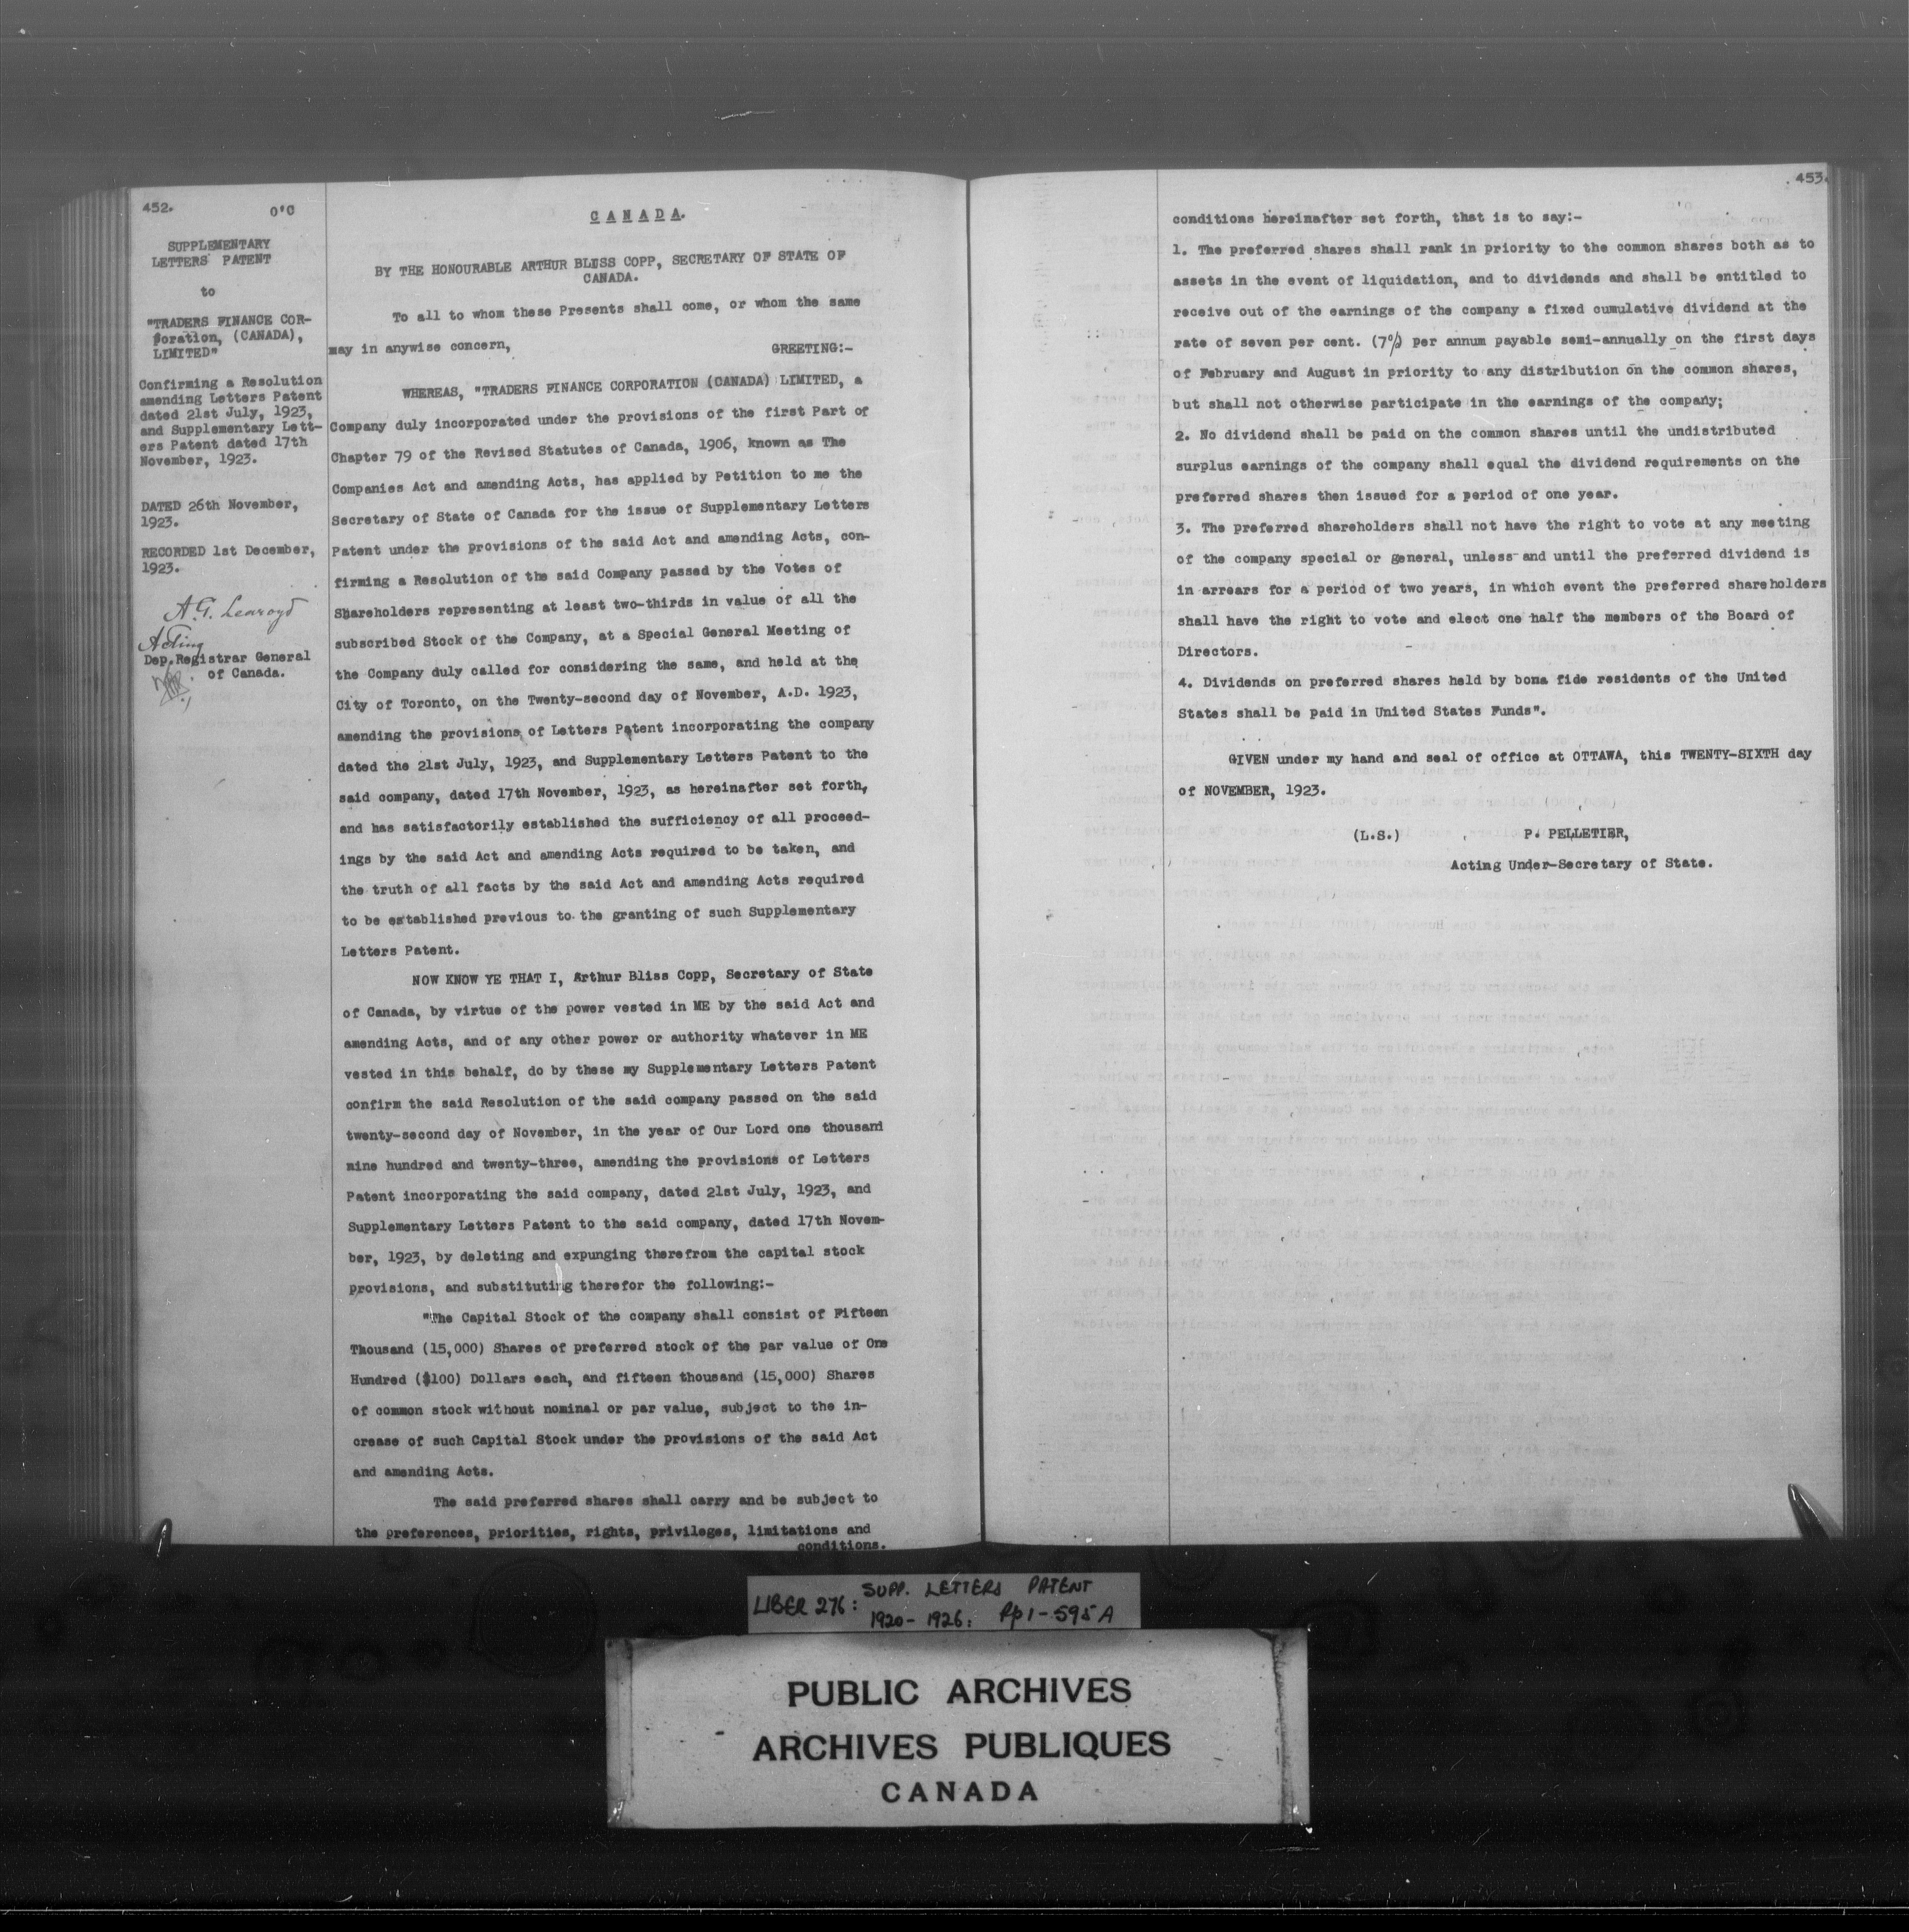 452.
O'C
SUPPLEMENTARY
LETTERS PATENT
to
"TRADERS FINANCE COR-
poration, (CANADA),
LIMITED"
Confirming a Resolution
amending Letters Patent
dated 21st July, 1923,
and Supplementary Lett-
ers Patent dated 17th
November, 1923.
DATED 26th November,
1923.
RECORDED 1st December,
1923.
A.G. Learoyd
Acting
Dep. Registrar General
of Canada.
CANADA.
BY THE HONOURABLE ARTHUR BLISS COPP, SECRETARY OF STATE OF
CANADA.
To all to whom these Presents shall come, or whom the same
may in anywise concern, GREETING:-
WHEREAS, "TRADERS FINANCE CORPORATION (CANADA) LIMITED, a
Company duly incorporated under the provisions of the first Part of
Chapter 79 of the Revised Statutes of Canada, 1906, known as The
Companies Act and amending Acts, has applied by Petition to me the
Secretary of State of Canada for the issue of Supplementary Letters
Patent under the provisions of the said Act and amending Acts, con-
firming a Resolution of the said Company passed by the Votes of
Shareholders representing at least two-thirds in value of all the
subscribed Stock of the Company, at a Special General Meeting of
the Company duly called for considering the same, and held at the
City of Toronto, on the Twenty-second day of November, A.D. 1923,
amending the provisions of Letters Patent incorporating the company
dated the 21st July, 1923, and Supplementary Letters Patent to the
said company, dated 17th November, 1923, as hereinafter set forth,
and has satisfactorily established the sufficiency of all proceed-
ings by the said Act and amending Acts required to be taken, and
the truth of all facts by the said Act and amending Acts required
to be established previous to the granting of such Supplementary
Letters Patent.
NOW KNOW YE THAT I, Arthur Bliss Copp, Secretary of State
of Canada, by virtue of the power vested in ME by the said Act and
amending Acts, and of any other power or authority whatever in ME
vested in this behalf, do by these my Supplementary Letters Patent
confirm the said Resolution of the said company passed on the said
twenty-second day of November, in the year of Our Lord one thousand
nine hundred and twenty-three, amending the provisions of Letters
Patent incorporating the said company, dated 21st July, 1923, and
Supplementary Letters Patent to the said company, dated 17th Novem-
ber, 1923, by deleting and expunging therefrom the capital stock
provisions, and substituting therefor the following:-
"The Capital Stock of the company shall consist of Fifteen
Thousand (15,000) Shares of preferred stock of the par value of One
Hundred ($100) Dollars each, and fifteen thousand (15,000) Shares
of common stock without nominal or par value, subject to the in-
crease of such Capital Stock under the provisions of the said Act
and amending Acts.
The said preferred shares shall carry and be subject to
the preferences, priorities, rights, privileges, limitations and
conditions.
453.
conditions hereinafter set forth, that is to say:-
1. The preferred shares shall rank in priority to the common shares both as to
assets in the event of liquidation, and to dividends and shall be entitled to
receive out of the earnings of the company a fixed cumulative dividend at the
rate of seven per cent. (7%) per annum payable semi-annually on the first days
of February and August in priority to any distribution on the common shares,
but shall not otherwise participate in the earnings of the company;
2. No dividend shall be paid on the common shares until the undistributed
surplus earnings of the company shall equal the dividend requirements on the
preferred shares then issued for a period of one year.
3. The preferred shareholders shall not have the right to vote at any meeting
of the company special or general, unless and until the preferred dividend is
in arrears for a period of two years, in which event the preferred shareholders
shall have the right to vote and elect one half the members of the Board of
Directors.
4. Dividends on preferred shares held by bona fide residents of the United
States shall be paid in United States Funds".
GIVEN under my hand and seal of office at OTTAWA, this TWENTY-SIXTH day
of NOVEMBER, 1923.
(L.S.) P. PELLETIER,
Acting Under-Secretary of State.
LIBER 276: SUPP. LETTERS PATENT
1920-1926: Pp 1-595A
PUBLIC ARCHIVES
ARCHIVES PUBLIQUES
CANADA